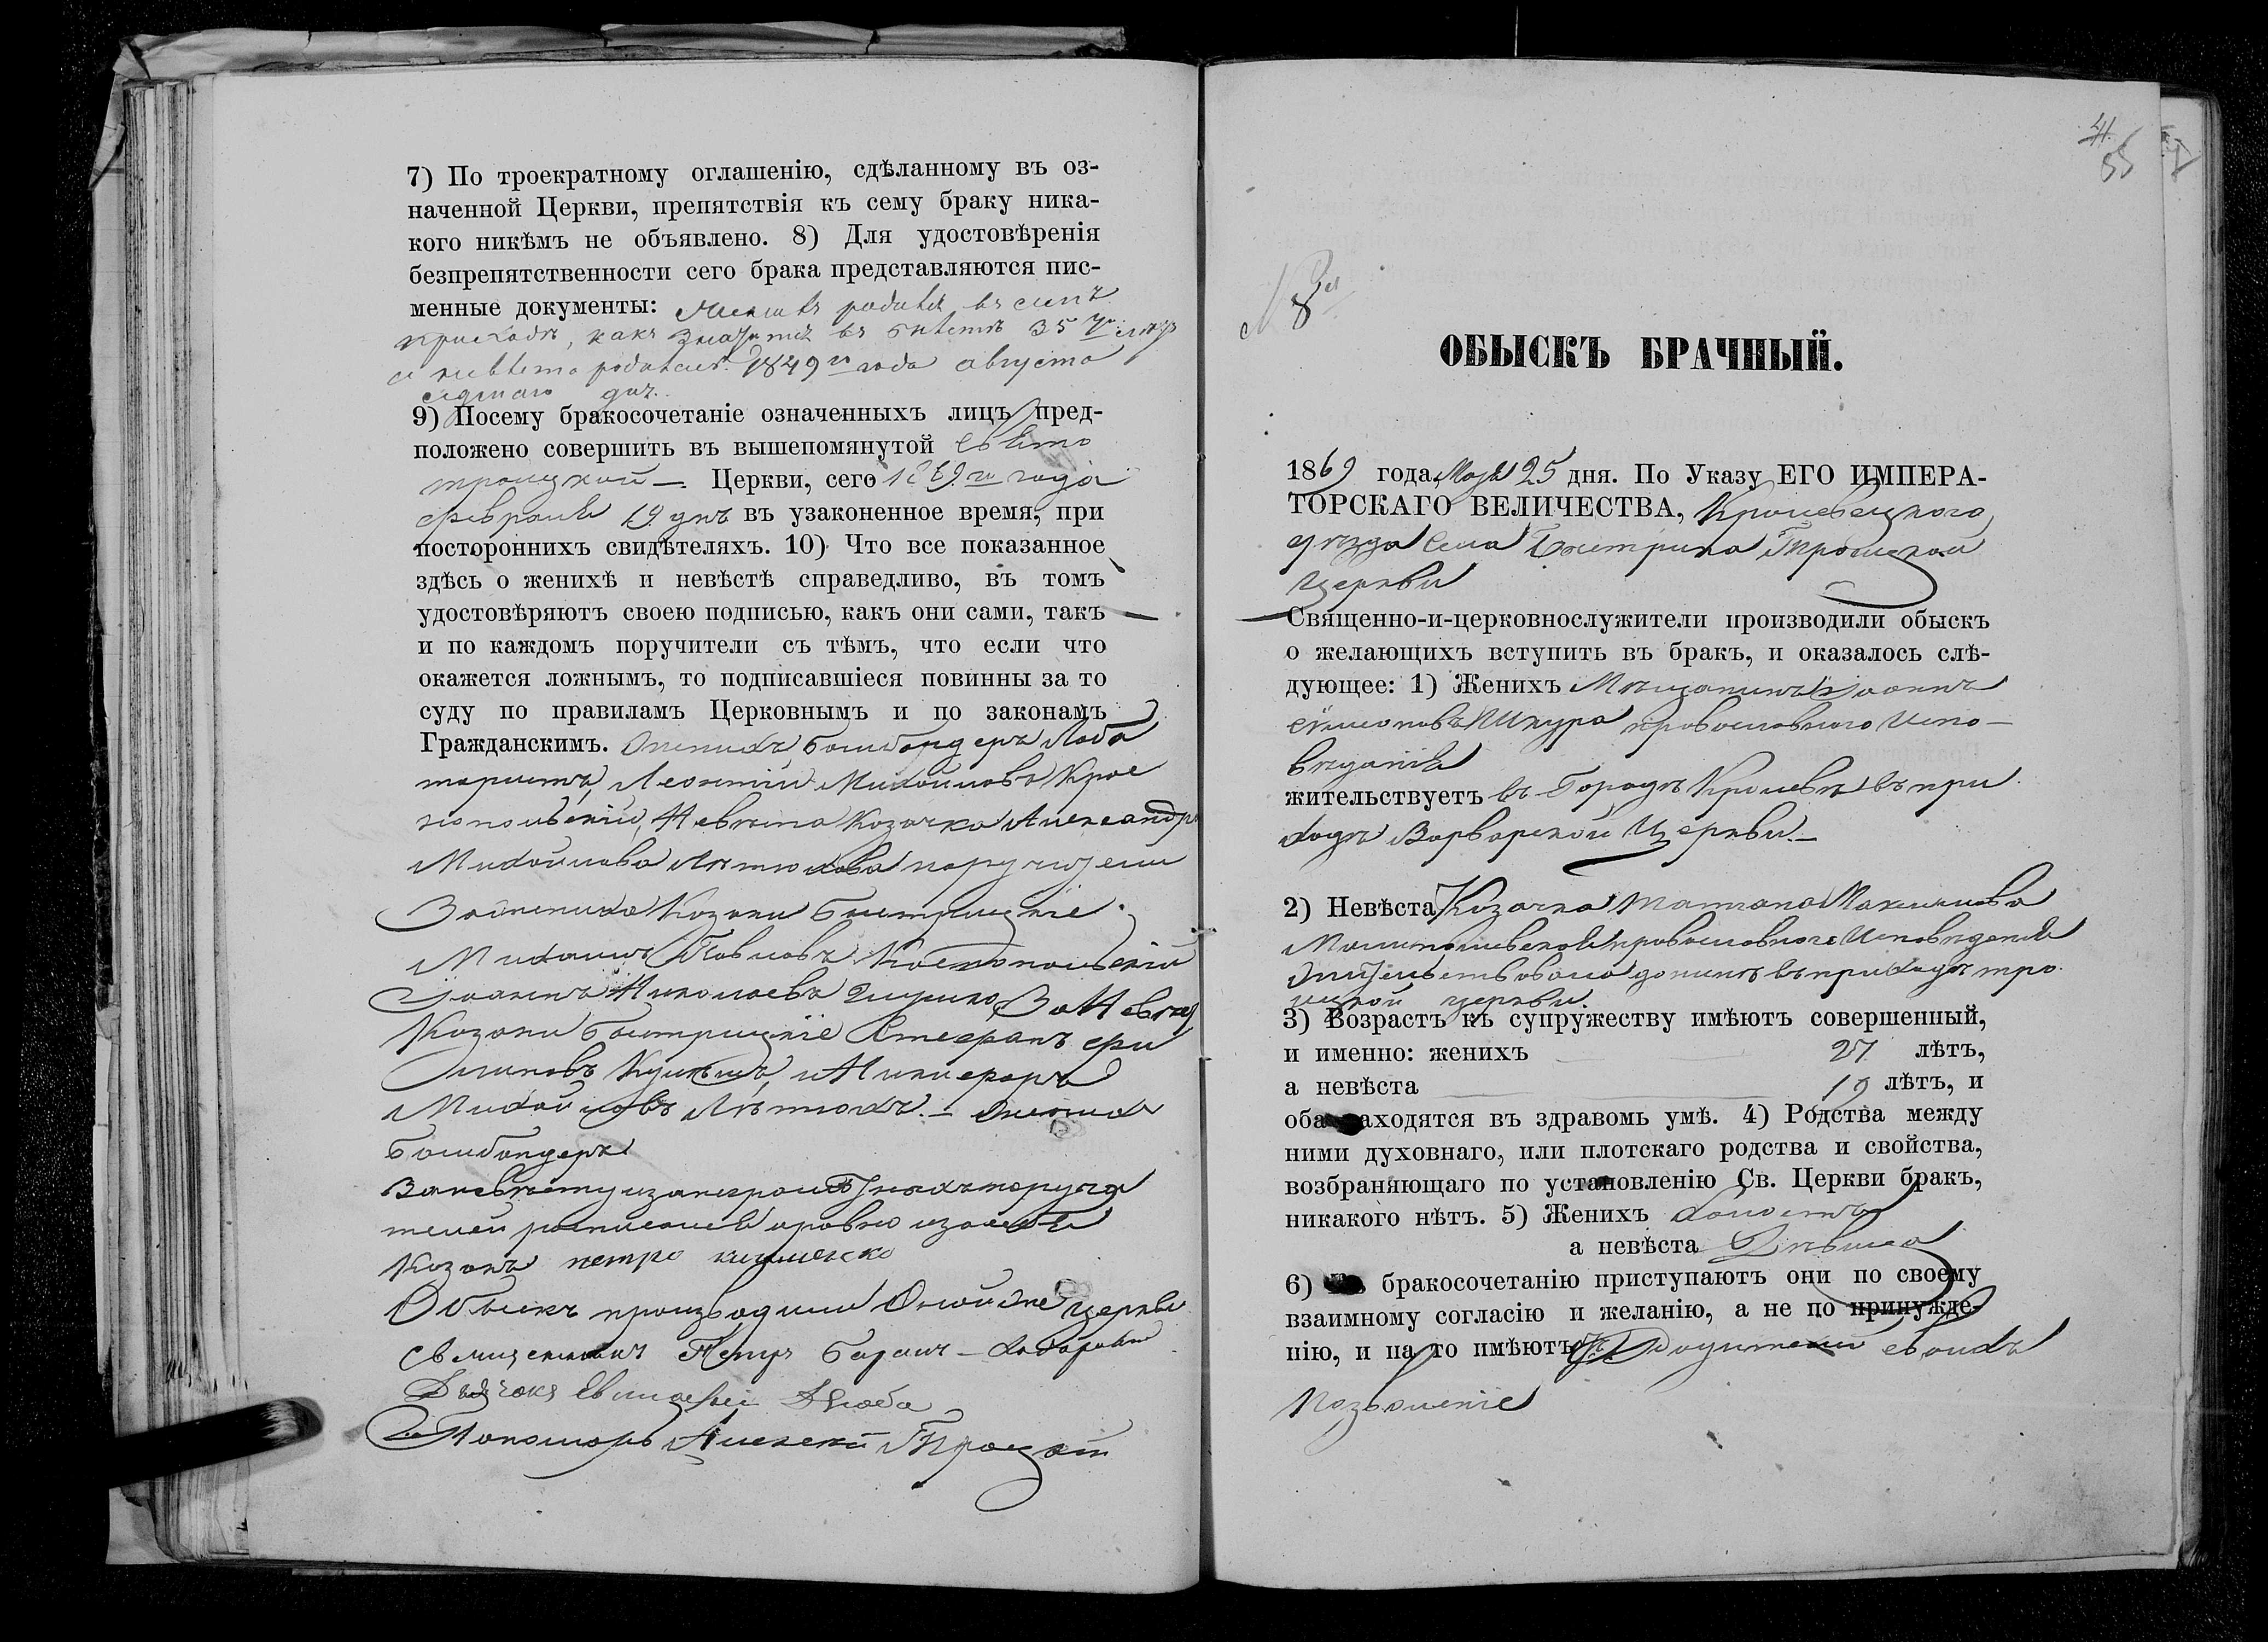 7) По троекратному оглашенію, сдѣланному въ оз-
наченной Церкви, препятствія къ сему браку ника-
кого никѣмъ не объявлено. 8) Для удостовѣренія
безпрепятственности сего брака представляются пис-
менные документы: родился въ семъ
приходѣ, какъ значится въ 35
а невѣста родилась 1849 го года августа
дня.
9) Посему бракосочетаніе означенныхъ лицъ пред-
положено совершить въ вышепомянутой Свято
троицкой — Церкви, сего 1869 го года
февраля 19 дня въ узаконенное время, при
постороннихъ свидѣтеляхъ. 10) Что все показанное
здѣсь о женихѣ и невѣстѣ справедливо, въ томъ
удостовѣряютъ своею подписью, какъ они сами, такъ
и по каждомъ поручители съ тѣмъ, что если что
окажется ложнымъ, то подписавшіеся повинны за то
суду по правиламъ Церковнымъ и по законамъ
Гражданскимъ. Женихъ бомбардеръ Лабо
тористъ, Леонтій Михайловъ Крас
нопольскій, Невѣста Козачка Александра
Михайлова Лѣтюхова поручители
За жениха Козаки Быстрицкіе.
Михаилъ Павловъ
Іоаннъ Николаевъ За Невѣсту
Козаки Быстрицкіе Стефанъ Фи
липовъ и Никифоръ
Михайловъ Лѣтюхъ. — Женихъ
бомбардеръ
За невѣсту и за неграмотныхъ поручи
телей росписался
Козакъ петро
Обыскъ производили Оной же церкви
священникъ Петръ
Дьячокъ Евстафій Дзюба
Пономарь Алексѣй Троцкій
41.
55
№ 8й
ОБЫСКЪ БРАЧНЫЙ.
1869 года, Мая 25 дня. По Указу ЕГО ИМПЕРА-
ТОРСКАГО ВЕЛИЧЕСТВА, Кролевецкого
уѣзда Села Быстрика Троицкой
Церкви
Священно-и-церковнослужители производили обыскъ
о желающихъ вступить въ бракъ, и оказалось слѣ-
дующее: 1) Женихъ Мѣщанинъ Іоаннъ
Симеоновъ Шкура православного Испо-
вѣданія
жительствуетъ въ Городѣ Кролевцѣ въ при
ходѣ Варварской Церкви. —
2) Невѣста Козачка Татіана Максимова
православного Исповѣданія
жительствовала донынѣ въ приходѣ тро
ицкой церкви.
3) Возрастъ къ супружеству имѣютъ совершенный,
и именно: женихъ 27 лѣтъ,
а невѣста 19 лѣтъ, и
оба находятся въ здравомъ умѣ. 4) Родства между
ними духовнаго, или плотскаго родства и свойства,
возбраняющаго по установленію Св. Церкви бракъ,
никакого нѣтъ. 5) Женихъ холостъ
а невѣста Дѣвица
6) бракосочетанію приступаютъ они по своему
взаимному согласію и желанію, а не по принужде-
нію, и на то имѣютъ Родителей своихъ
Позволеніе